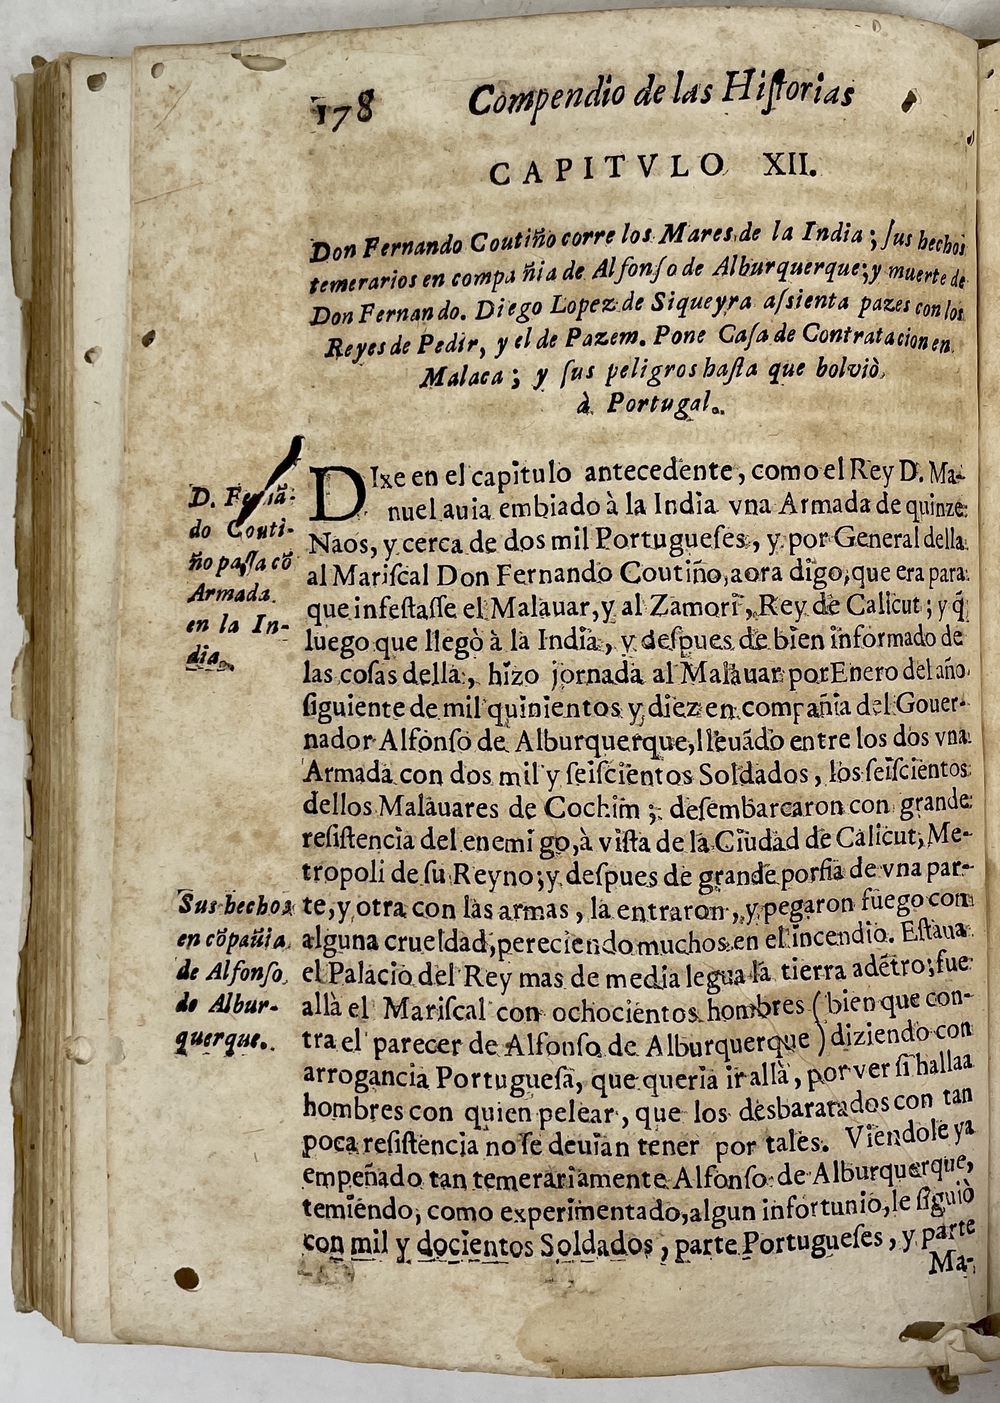 178 Compendio de las Hiſtorias
CAPITVLO XII.
Don Fernando Coutiño corre los Mares de la India; ſus hechos
temerarios en compañia de Alfonſo de Alburquerque; y muerte de
Don Fernando. Diego Lopez de Siqueyra aſsienta pazes con los
Reyes de Pedir, y el de Pazem. Pone Caſa de Contratacion en
Malaca; y ſus peligros haſta que bolviò
à Portugal.
D. Fernã-
do Couti-
ño paſſa cõ
Armada
en la In-
dia.
DIxe en el capitulo antecedente, como el Rey D. Ma-
nuel auia embiado à la India vna Armada de quinze
Naos, y cerca de dos mil Portugueſes, y por General della
al Mariſcal Don Fernando Coutiño, aora digo, que era para
que infeſtaſſe el Malauar, y al Zamorĩ, Rey de Calicut; y q̃
luego que llegò à la India, y deſpues de bien informado de
las coſas della, hizo jornada al Malauar por Enero del año
ſiguiente de mil quinientos y diez en compañia del Gouer-
nador Alfonſo de Alburquerque, lleuãdo entre los dos vna
Armada con dos mil y ſeiſcientos Soldados, los ſeiſcientos
dellos Malauares de Cochim; deſembarcaron con grande
reſiſtencia del enemigo, à viſta de la Ciudad de Calicut, Me-
tropoli de ſu Reyno; y deſpues de grande porfia de vna par-
te, y otra con las armas, la entraron, y pegaron fuego con
alguna crueldad, pereciendo muchos en el incendio. Eſtaua
el Palacio del Rey mas de media legua la tierra adẽtro; fue
allà el Mariſcal con ochocientos hombres (bien que con-
tra el parecer de Alfonſo de Alburquerque) diziendo con
arrogancia Portugueſa, que queria ir allà, por ver ſi hallaa
hombres con quien pelear, que los desbaratados con tan
poca reſiſtencia no ſe deuian tener por tales. Viendole ya
empeñado tan temerariamente Alfonſo de Alburquerque,
temiendo, como experimentado, algun infortunio, le ſiguiò
con mil y docientos Soldados, parte Portugueſes, y parte
Ma-
Sus hechos
en cõpañia
de Alfonſo
de Albur-
querque.